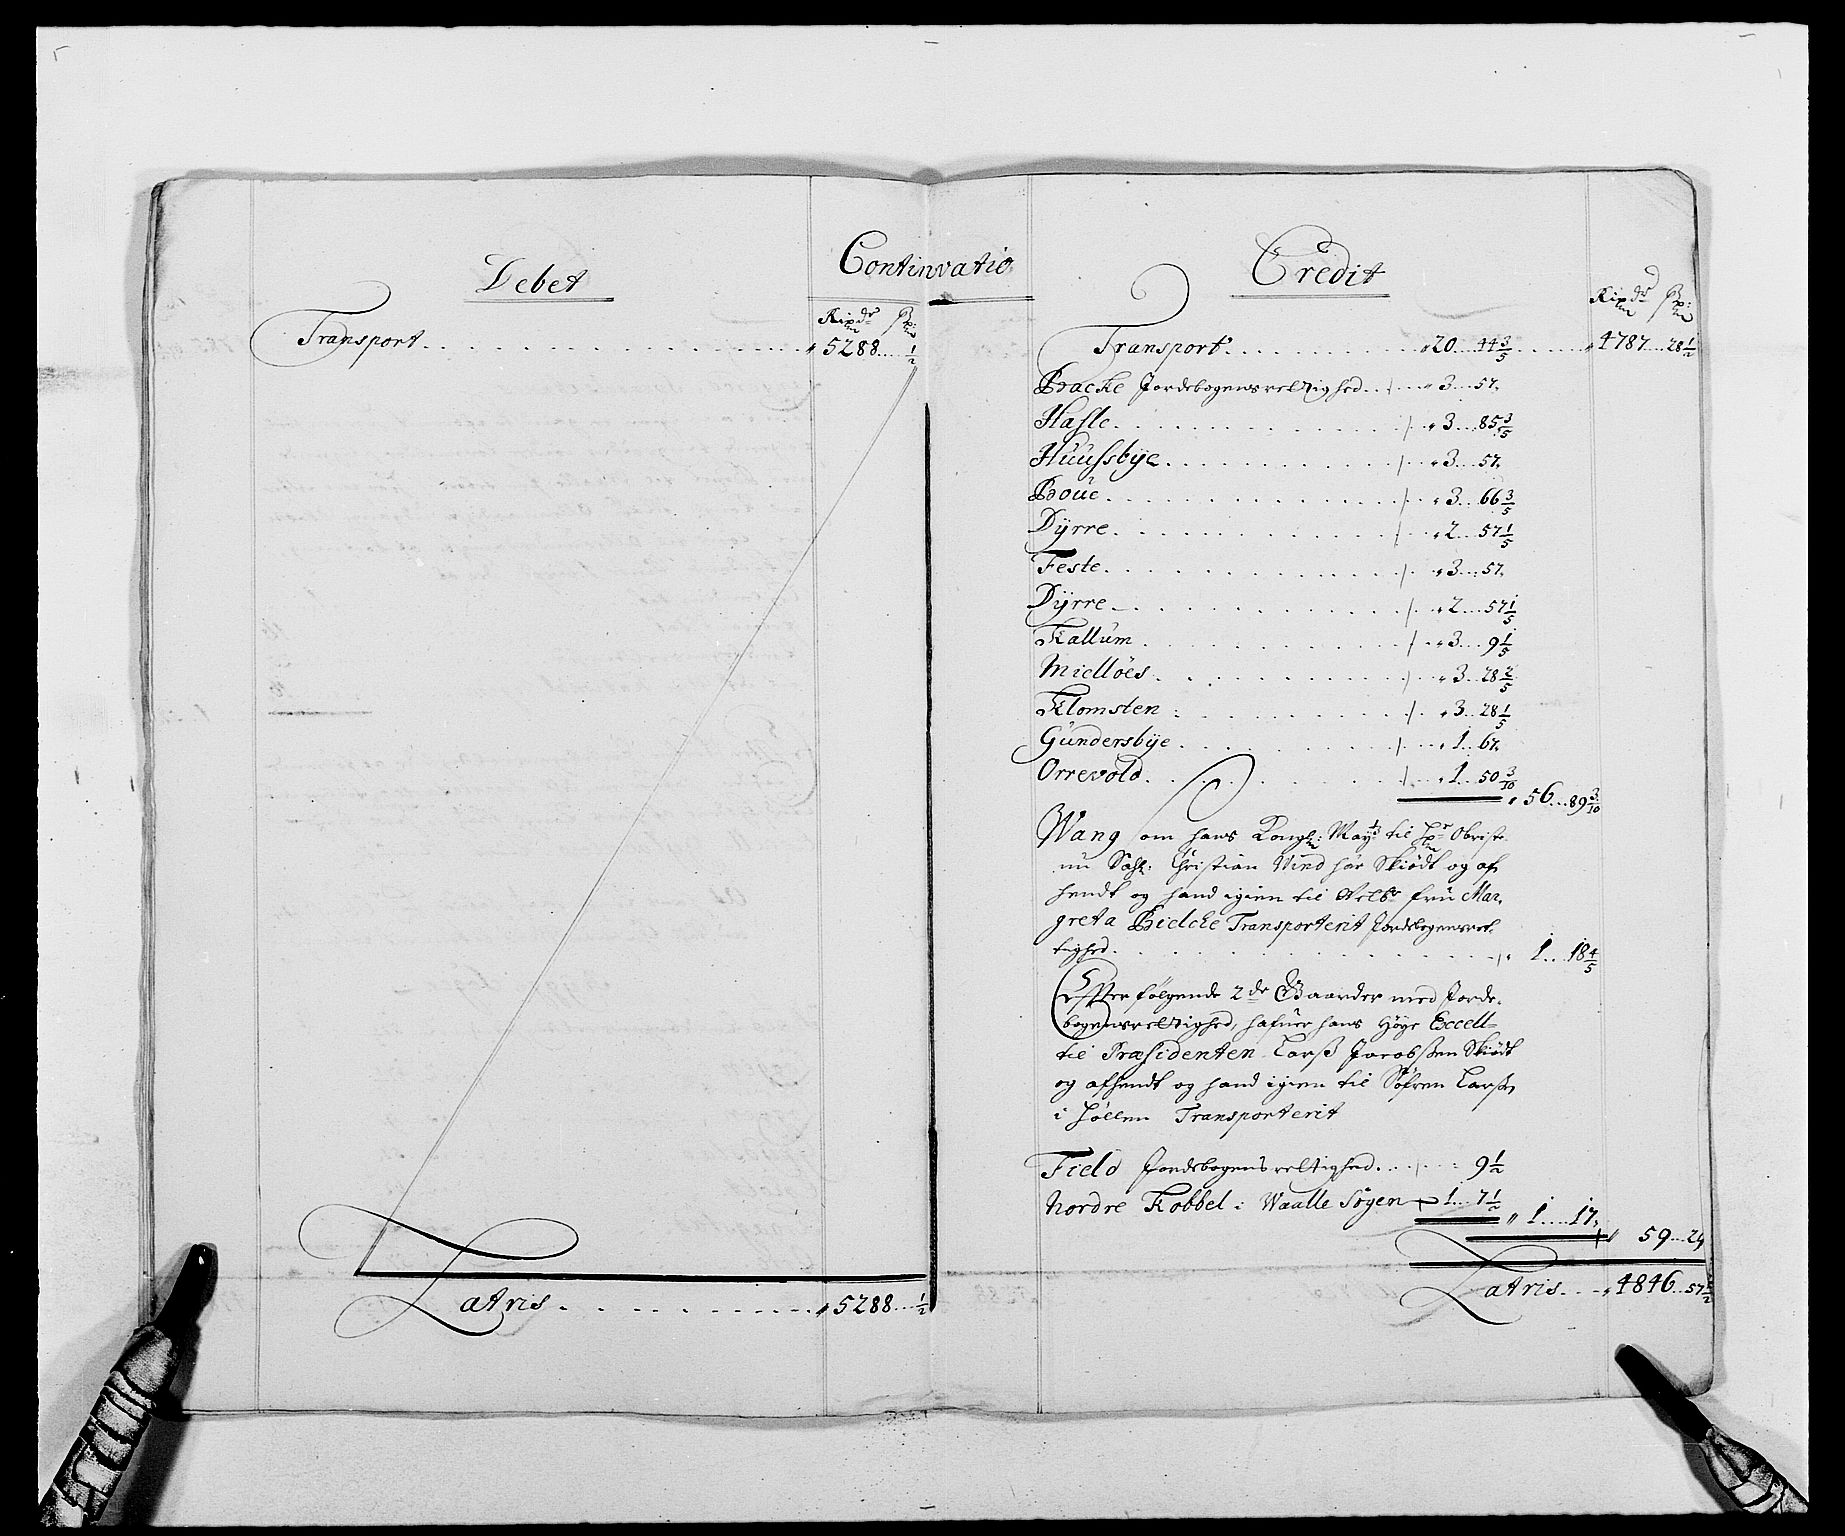 Continuatio
Debet
Rixdr ß
Transport. . . . . . . . . . . . 5288....½
Latris. . . . . . . . . . . . 5288....½
Credit
Rixdr ß
Transport. . . . . . . . . 20...44 3/5 . . . . . 4787....28½
Backe Jordebogensrettighed. . . . 3...57.
Hasle. . . . . . . . . . 3...85 3/5
Huussbÿe. . . . . . . . . . 3...57.
Boúe. . . . . . . . . . 3...66 3/5
Dÿrre. . . . . . . . . . 2...57 1/5
Feste. . . . . . . . . . 3...57.
Dÿrre. . . . . . . . . . 2...57 1/5
Kallum. . . . . . . . . . 3...9 1/5
Mielløes. . . . . . . . . . 3...28 2/5
Klomsten. . . . . . . . . . 3...28 1/5
Gúndersbÿe. . . . . . . . . . 1...67.
Orrevold. . . . . . . . . . 1...50 3/10
56...89 3/10
Wang om hans Kongl: Mayts til Hr Obriste
nu Sahl: Christian Vind har Skiødt og af
hendt og hand igien til Velbr frú Mar,
greta Bielche Transporterit Jordebogensret,
tighed. . . . . . . . . . 1...18 4/5
Effter følgende 2de Gaarder med Jorde,
bogensrettighed, hafuer hans Høye Excell=
til Præsidenten Larß Jacobßen Skiødt
og afhendt og hand igien til Søfren Larß,
i Hollen Transporterit
Field Jordebogensrettighed. . . . 9½
Nordre Kobbel i Waalle Sogen 1...7½
1....17.
59...24
Latris. . . 4846...57½